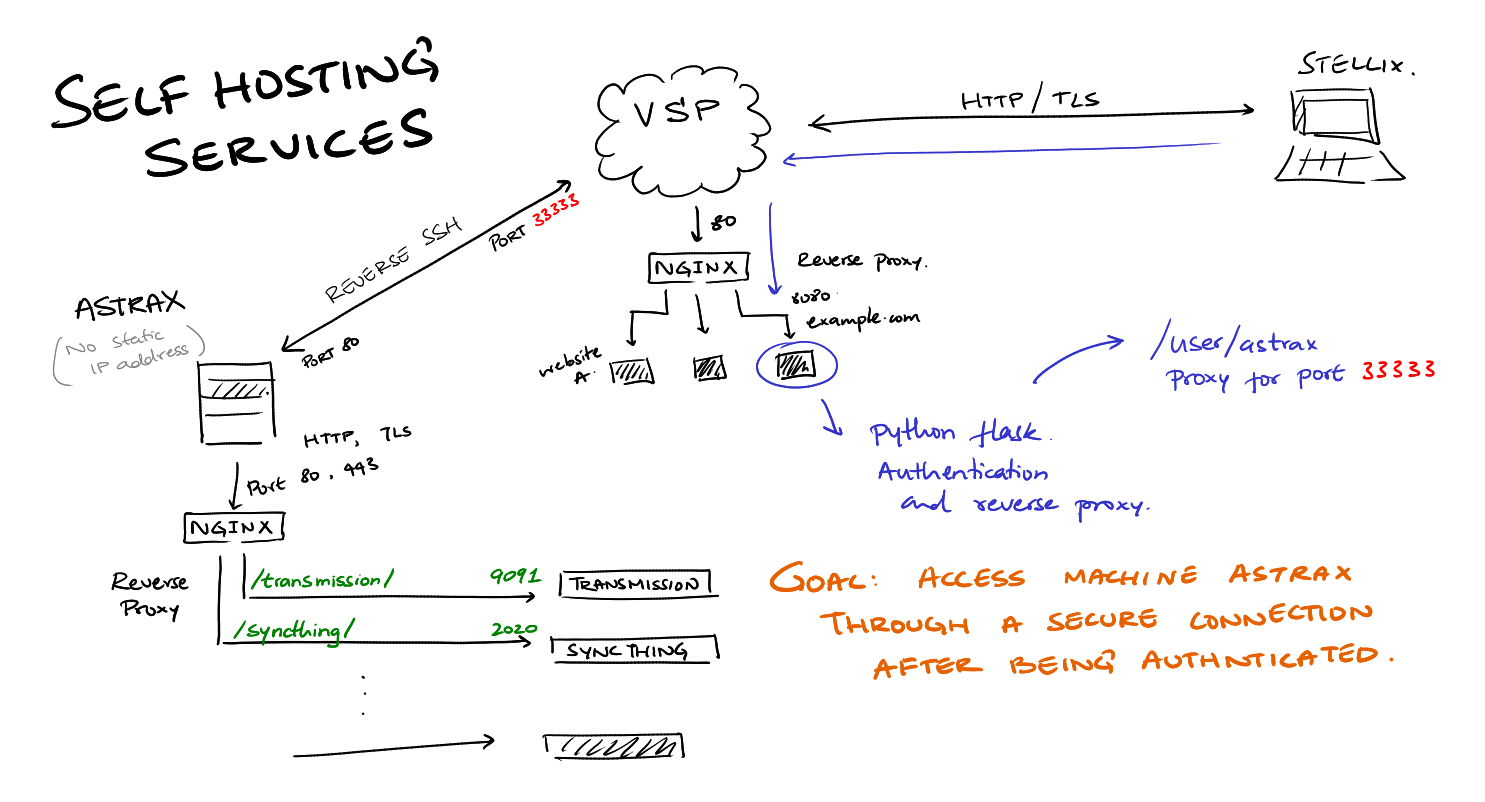 SELF HOSTING
SERVICES
VSP
HTTP / TLS
STELLIX.
REVERSE SSH
PORT 33333
80
NGINX
Reverse Proxy.
8080
example.com
website
A.
ASTRAX
(No static
IP address)
PORT 80
/user/astrax
Proxy for port 33333
python flask.
Authentication
and reverse proxy.
HTTP, TLS
Port 80, 443
NGINX
Reverse
Proxy
/transmission/ 9091 TRANSMISSION
/syncthing/ 2020 SYNCTHING
GOAL: ACCESS MACHINE ASTRAX
THROUGH A SECURE CONNECTION
AFTER BEING AUTHNTICATED.